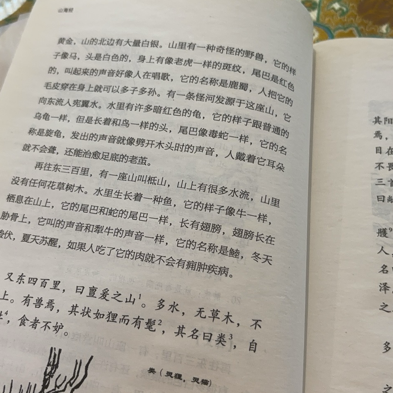 山海经
黄金，山的北边有大量白银。山里有一种奇怪的野兽，它的样
子像马，头是白色的，身上有像老虎一样的斑纹，尾巴是红色
的，叫起来的声音好像人在唱歌，它的名称是鹿蜀，人把它的
毛皮穿在身上就可以多子多孙。有一条怪河发源于这座山，它
向东流入宪翼水。水里有许多暗红色的龟，它的样子跟普通的
乌龟一样，但是长着和鸟一样的头，尾巴像毒蛇一样，它的名
称是旋龟，发出的声音就像劈开木头时的声音，人戴着它耳朵
就不会聋，还能治愈足底的老茧。
再往东三百里，有一座山叫柢山，山上有很多水流，山里
没有任何花草树木。水里生长着一种鱼，它的样子像牛一样，
栖息在山上，它的尾巴和蛇的尾巴一样，长有翅膀，翅膀长在
胁骨上，它叫的声音和犁牛的声音一样，它的名称是鯥，冬天
蛰伏，夏天苏醒，如果人吃了它的肉就不会有痈肿疾病。
又东四百里，曰亶爰之山¹。多水，无草木，不
上。有兽焉，其状如狸而有髦²，其名曰类³，自
牡⁴，食者不妒。
其阳
焉，
目在
不
三首
曰
人
名
泽
之
多
之